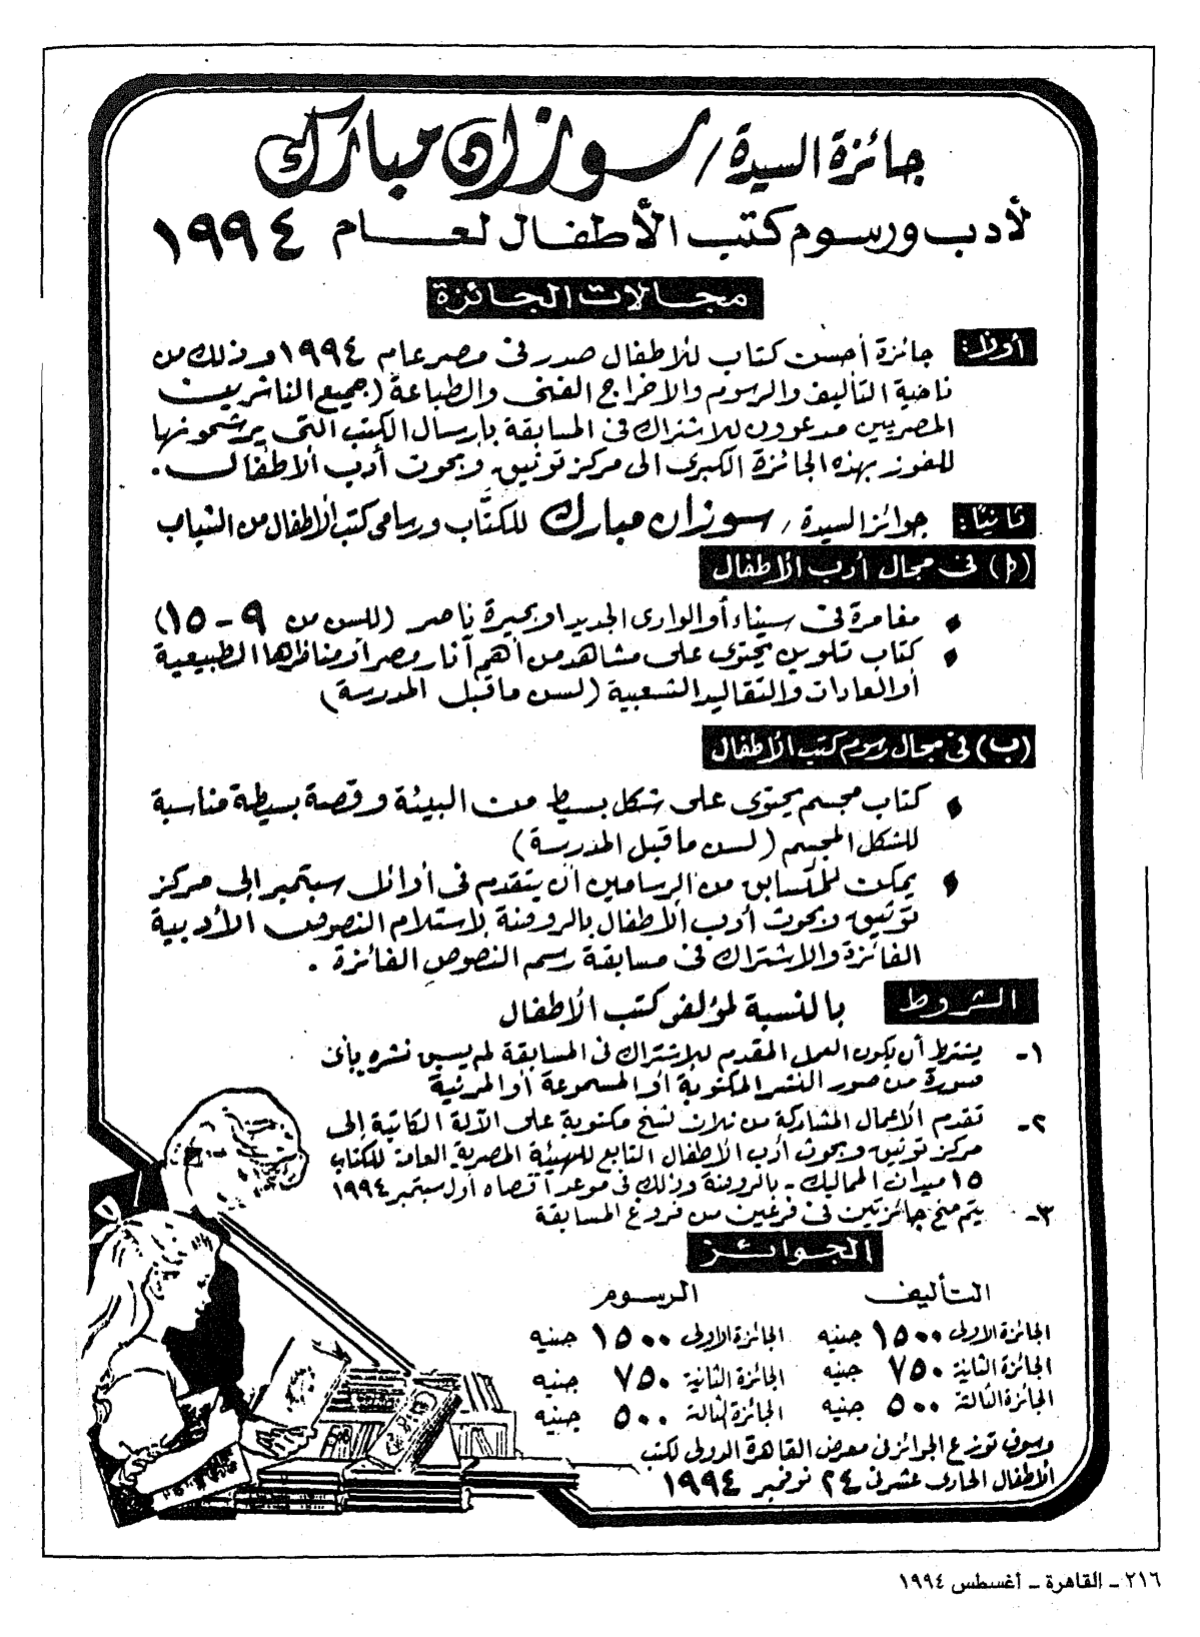 جائزة السيدة / سوزان مبارك
لأدب ورسوم كتب الأطفال لعام ١٩٩٤
مجالات الجائزة
أولاً: جائزة أحسن كتاب للأطفال صدر فى مصر عام ١٩٩٤ وذلك من
ناحية التأليف والرسوم والاخراج الفنى والطباعة (جميع الناشرين
المصريين مدعوون للاشتراك فى المسابقة بارسال الكتب التى يرشحونها
للفوز بهذه الجائزة الكبرى الى مركز توثيق وبحوث أدب الأطفال.
ثانيًا: جوائز السيدة / سوزان مبارك للكتَّاب ورسامى كتب الأطفال من الشباب
(أ) فى مجال أدب الأطفال
• مغامرة فى سيناء أو الوادى الجديد او بحيرة ناصر (للسن من ٩ - ١٥)
• كتاب تلوين يحتوى على مشاهد من أهم آثار مصر أو مناظرها الطبيعية
أو العادات والتقاليد الشعبية (لسن ماقبل المدرسة)
(ب) فى مجال رسوم كتب الأطفال
• كتاب مجسم يحتوى على شكل بسيط من البيئة وقصة بسيطة مناسبة
للشكل المجسم (لسن ماقبل المدرسة)
• يمكن للمتسابق من الرسامين أن يتقدم فى أوائل سبتمبر إلى مركز
توثيق وبحوث أدب الأطفال بالروضة لاستلام النصوص الأدبية
الفائزة والاشتراك فى مسابقة رسم النصوص الفائزة.
الشروط بالنسبة لمؤلفى كتب الأطفال
١- يشترط أن يكون العمل المقدم للاشتراك فى المسابقة لم يسبق نشره بأى
صورة من صور النشر المكتوبة أو المسموعة أو المرئية
٢- تقدم الأعمال المشاركة من ثلاث نسخ مكتوبة على الآلة الكاتبة إلى
مركز توثيق وبحوث أدب الأطفال التابع للهيئة المصرية العامة للكتاب
١٥ ميدان المماليك - بالروضة وذلك فى موعد أقصاه أول سبتمبر ١٩٩٤
٣- يتم منح جائزتين فى فرعين من فروع المسابقة
الجوائز
التأليف الرسوم
الجائزة الاولى ١٥٠٠ جنيه الجائزة الاولى ١٥٠٠ جنيه
الجائزة الثانية ٧٥٠ جنيه الجائزة الثانية ٧٥٠ جنيه
الجائزة الثالثة ٥٠٠ جنيه الجائزة الثالثة ٥٠٠ جنيه
وسوف توزع الجوائز فى معرض القاهرة الدولى لكتب
الأطفال الحادى عشر فى ٢٤ نوفمبر ١٩٩٤
٢١٦ ـ القاهرة ـ أغسطس ١٩٩٤